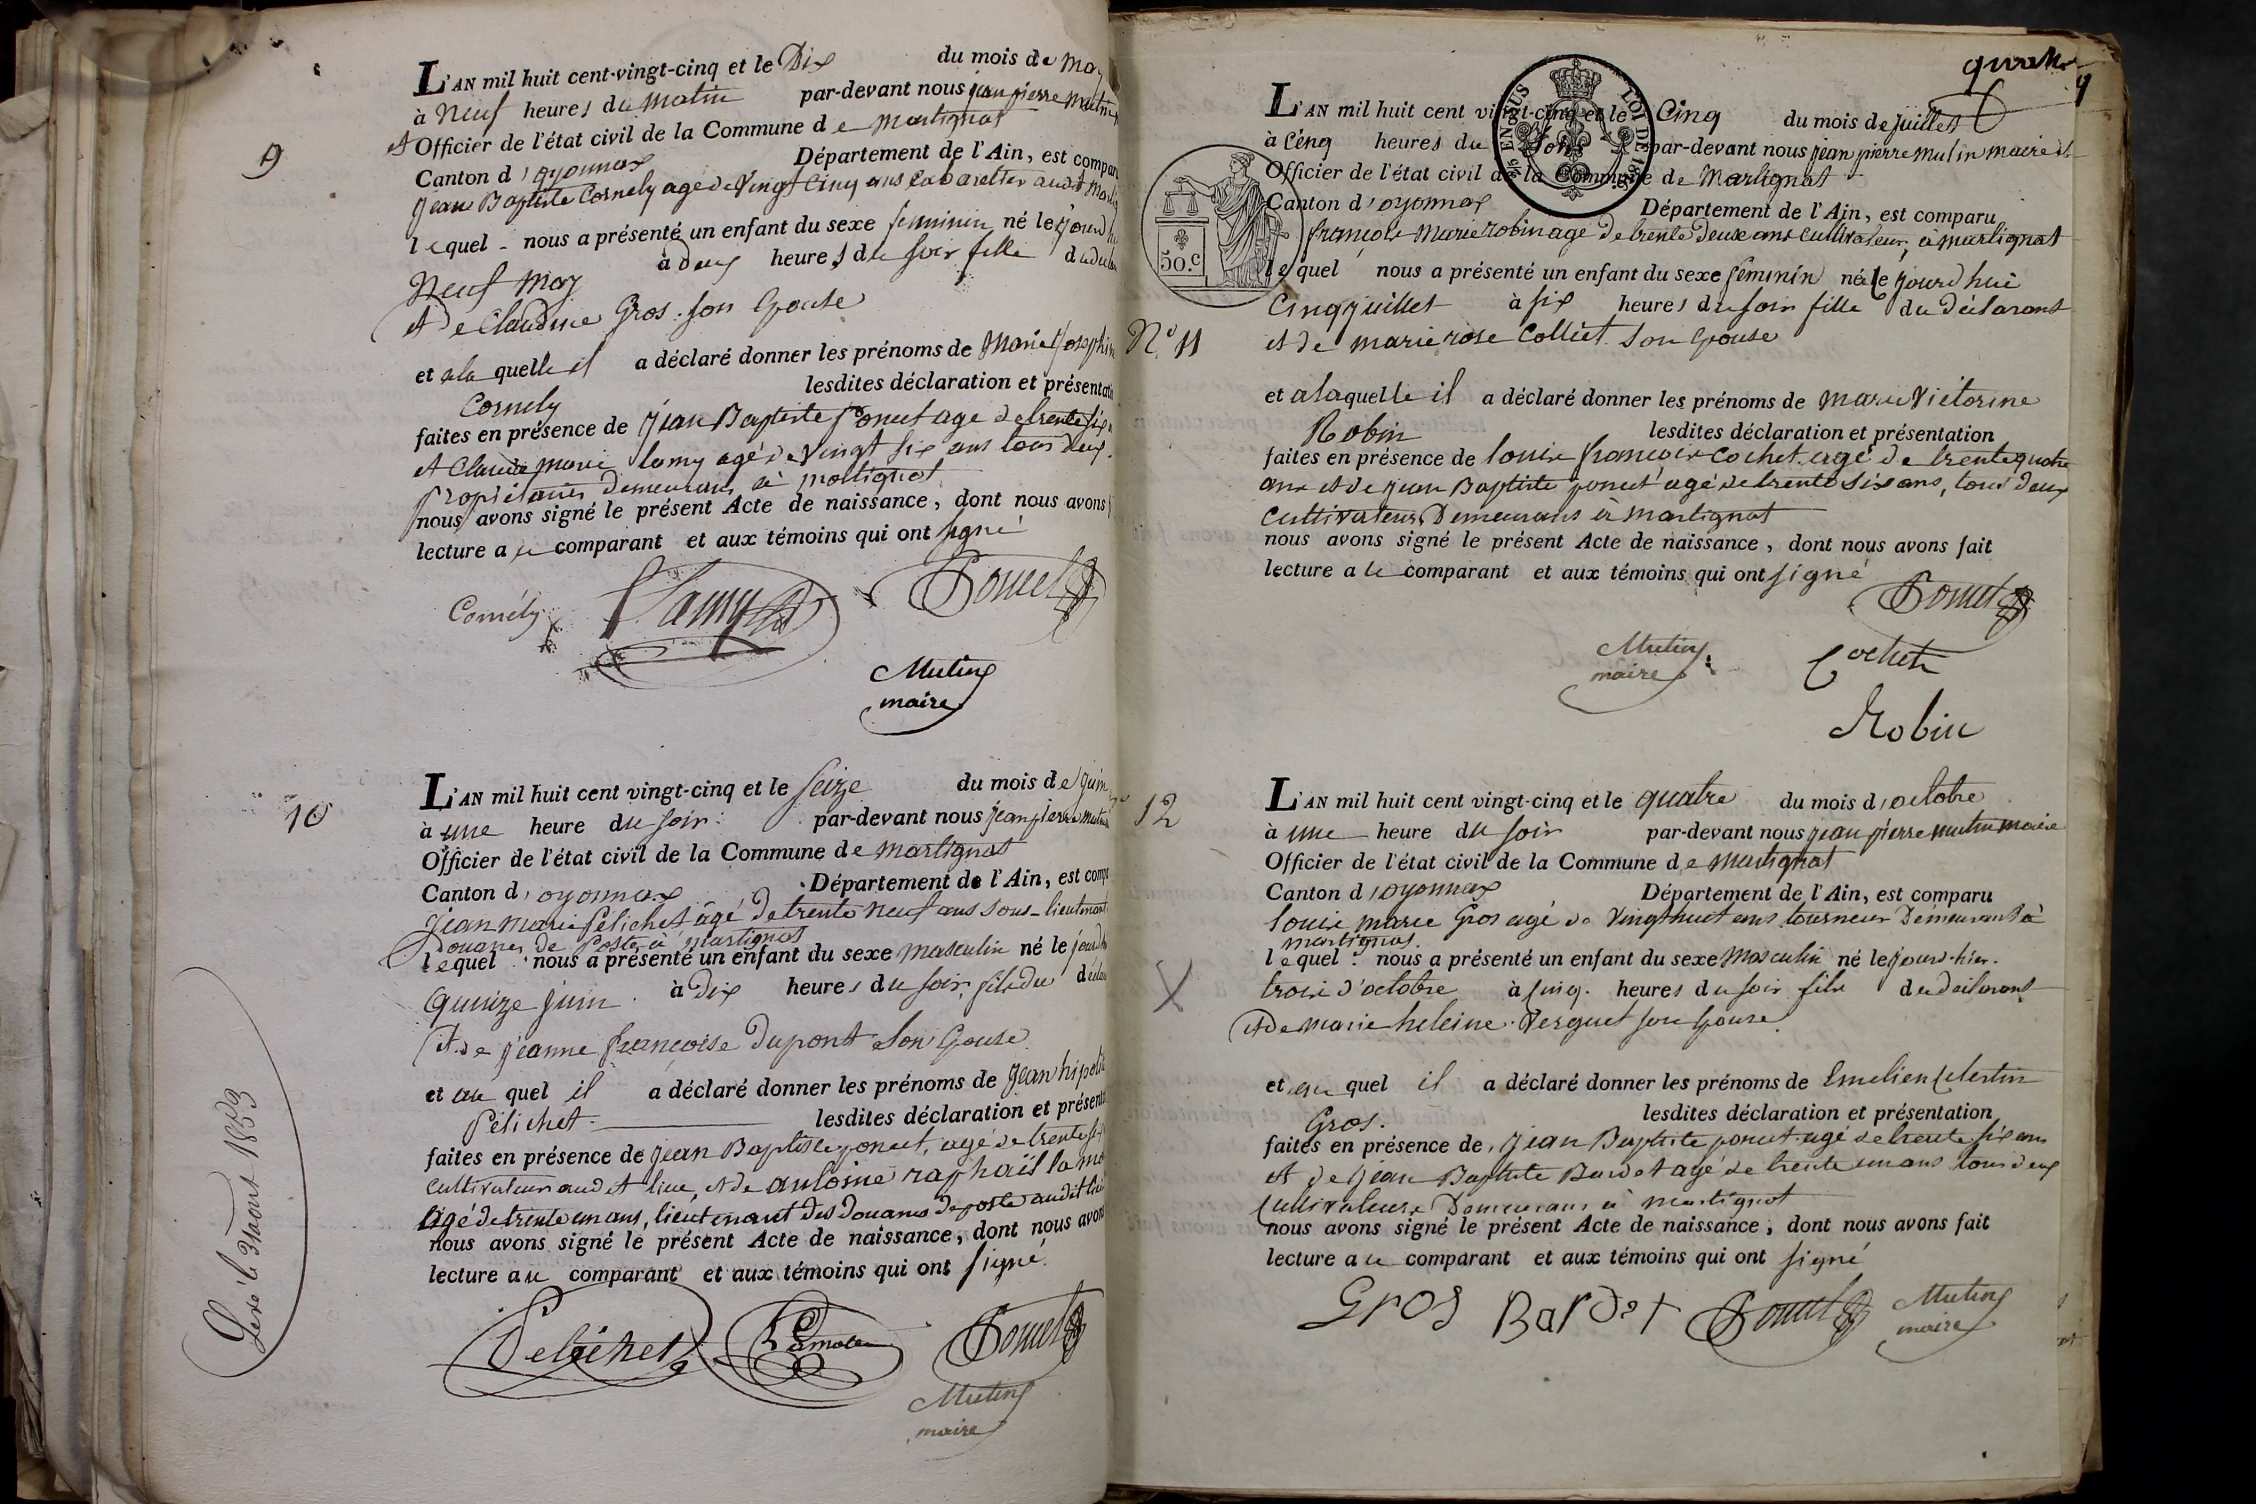 9
L'AN mil huit cent-vingt-cinq et le Dix du mois de may
à Neuf heures du matin par-devant nous jean pierre mutin
et Officier de l'état civil de la Commune de martignat
Canton d'oyonnax Département de l'Ain, est compar
jean Baptiste Cornely agé de Vingt Cinq ans Cabaretier audit Mart
lequel nous a présenté un enfant du sexe feminin né le jourd
Neuf may à Deux heures du soir fille du
et De Claudine Gros son Epouse
et a la quelle il a déclaré donner les prénoms de Marie Josephine
Cornely lesdites déclaration et présentati
faites en présence de jean Baptiste Poncet age de trente six
et Claude marie lamy agé de Vingt six ans tous deux
propriétaires Demeurans à martignat
nous avons signé le présent Acte de naissance, dont nous avons
lecture au comparant et aux témoins qui ont signé
Cornély Lamy Poncet
Mutin
maire
10
L'AN mil huit cent vingt-cinq et le seize du mois de juin
à une heure du soir par-devant nous jean pierre mutin
Officier de l'état civil de la Commune de martignat
Canton d'oyonnax Département de l'Ain, est comp
jean marie Pelichet âgé de trente neuf ans sous-lieutenant
douanes de Poste à martignat
lequel nous a présenté un enfant du sexe masculin né le jourd
quinze juin à Dix heures du soir, fils du décla
et de jeanne françoise Dupont son Epouse
et au quel il a déclaré donner les prénoms de jean hipolite
Pélichet lesdites déclaration et présenta
faites en présence de jean Baptiste poncet, agé de trente six
cultivateur audit lieu, et de antoine raphaël
âgé de trente un ans, lieutenant des Douanes de poste audit lieu
nous avons signé le présent Acte de naissance, dont nous avons
lecture au comparant et aux témoins qui ont signé
Pelichet Poncet
Mutin
maire
1853
quatre
4
TIMBRE
LOI DE
50.c
N.o 11
L'AN mil huit cent vingt-cinq et le Cinq du mois de juillet
à Cinq heures du soir par-devant nous jean pierre mutin maire et
Officier de l'état civil de la Commune de Martignat
Canton d'oyonnax Département de l'Ain, est comparu
françois Marie robin age de trente Deux ans Cultivateur, à martignat
lequel nous a présenté un enfant du sexe feminin né le jourd'hui
Cinq juillet à six heures du soir fille du Déclarant
et de marie rose Colliet son Epouse
et a laquelle il a déclaré donner les prénoms de marie Victorine
Robin lesdites déclaration et présentation
faites en présence de louis françois Cochet agé de trente quatre
ans et de jean Baptiste poncet agé de trente six ans, tous deux
Cultivateurs Demeurans à Martignat
nous avons signé le présent Acte de naissance, dont nous avons fait
lecture a le comparant et aux témoins qui ont signé
Poncet
Mutin
maire
Cochet
Robin
12
L'AN mil huit cent vingt-cinq et le quatre du mois d'octobre
à une heure du soir par-devant nous jean pierre mutin maire
Officier de l'état civil de la Commune de martignat
Canton d'oyonnax Département de l'Ain, est comparu
louis marie Gros agé de Vingt huit ans tourneur Demeurant à
martignat
lequel nous a présenté un enfant du sexe Masculin né le jourd-hier
trois d'octobre à cinq heures du soir fils du déclarant
et de marie heleine Verguet son Epouse
et au quel il a déclaré donner les prénoms de Emelien Celestin
Gros. lesdites déclaration et présentation
faites en présence de jean Baptiste poncet agé de trente six ans
et de jean Baptiste Bardet agé de trente un ans tous deux
Cultivateurs Demeurans à martignat
nous avons signé le présent Acte de naissance, dont nous avons fait
lecture au comparant et aux témoins qui ont signé
Gros Bardet Poncet Mutin
maire